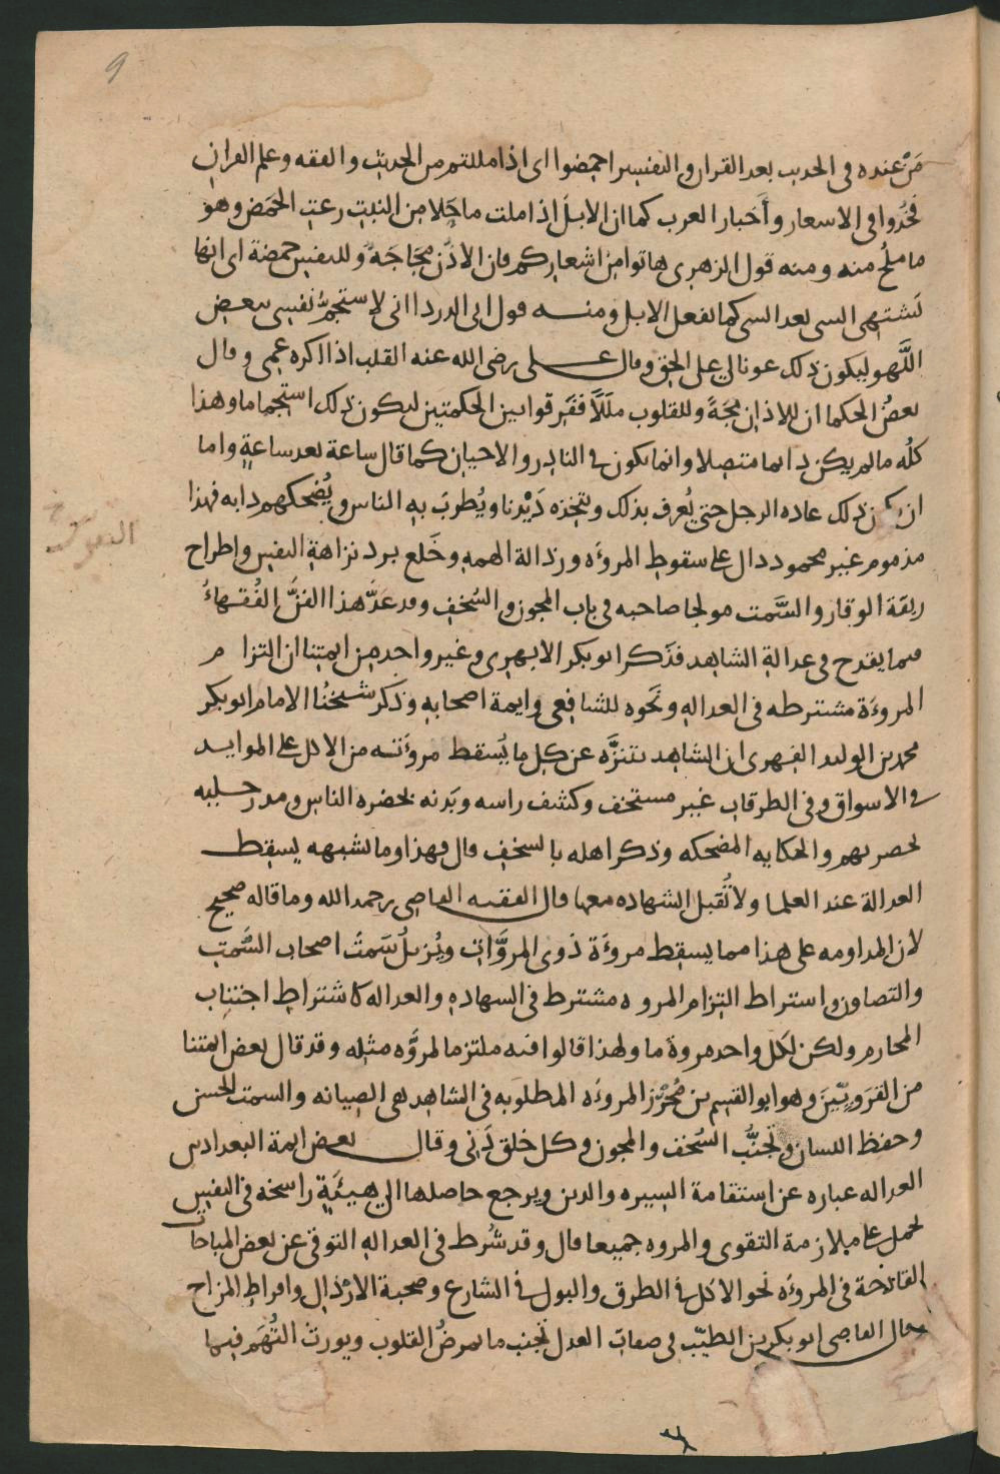 9
مَن عنده في الحديث بعد القران والتفسير احمضوا اى اذا مللتم من الحديث والفقه وعلم القران
فخذوا في الاشعار وأخبار العرب كما ان الابل اذا ملت ما حَلا من النبت رعت الحَمض وهو
ما ملُح منه ومنه قول الزهري هاتوا من اشعاركم فان الاذن مجّاجَة وللنفس حمضة اى انها
تشتهي الشي بعد الشي كما تفعل الابل ومنه قول ابي الدرداء اني لاستجمُّ نفسي ببعض
اللَّهو ليكون ذلك عونا لي على الحق وقال على رضى الله عنه القلب اذا اكره عمي وقال
بعضُ الحكما ان للاذان مَجَّة وللقلوب مللاً ففرقوا بين الحكمتين ليكون ذلك استجماما وهذا
كلُه مالم يكن دايما متصلا وانما تكون في النادر والاحيان كما قال ساعة بعد ساعةٍ واما
ان يكن ذلك عاده الرجل حتى يُعرف بذلك ويتخذه دَيْدنا ويُطربَ به الناس ويُضحكهم دابه فهذا
مذموم غير محمود دال على سقوط المروَّه ورذالة الهمه وخَلع برد نزاهة النفس واطراح
ربقة الوقار والسَّمت مولجا صاحبه في باب المجون والسُّخف وقد عَدَّ هذا الفنَّ الفُقهاءُ
مما يقدح في عدالة الشاهد فذكر ابو بكر الابهرى وغير واحد من ايمتنا ان التزام
المروءَة مشترطه في العداله ونَحوه للشافعي وايمة اصحابه وذكر شيخُنا الامام ابو بكر
محمد بن الوليد الفهرى ان الشاهد يتنزَّه عن كل ما يُسقط مروءَته من الاكل على الموايد
في الاسواق وفي الطرقات غير مستخف وكشف راسه وبَدنه بحضره الناس ومد رجليه
بحضرتهم والحكايه المضحكه وذكر اهله بالسخف قال فهذا وما شبهه يسقط
العدالة عند العلما ولا تُقبل الشهاده معها قال الفقيه القاضي رحمه الله وما قاله صحيح
لان المداومه على هذا مما يسقط مروءَة ذوى المروَّات ويُزيلُ سَمتَ اصحاب السَّمت
والتصاون واشتراط التزام المروه مشترط في الشهاده والعداله كاشتراط اجتناب
المحارم ولكن لكل واحد مروة ما ولهذا قالوا فيه ملتزما لمروَّه مثله وقد قال بعض ايمتنا
من القرويّينَ وهو ابو القسم بن مُحْرِز المروءَه المطلوبه في الشاهد هي الصيانه والسمت الحسن
وحفظ اللسان وتجنُّب السُخف والمجون وكل خلق دَني وقال بعض ايمة البغدادىين
العداله عباره عن استقامة السيره والدين ويرجع حاصلها الى هيئَةٍ راسخه في النفس
تحمل على ملازمة التقوى والمروه جميعا قال وقد شُرط في العداله التوقي عن بعض المباحات
القادحة في المروءَه نحو الاكل في الطرق والبول في الشارع وصحبة الارذال وافراط المزاح
وقال القاضي ابو بكر بن الطيّب في صفات العدل تجنب ما يمرضُ القلوب ويورث التُهَم فيما